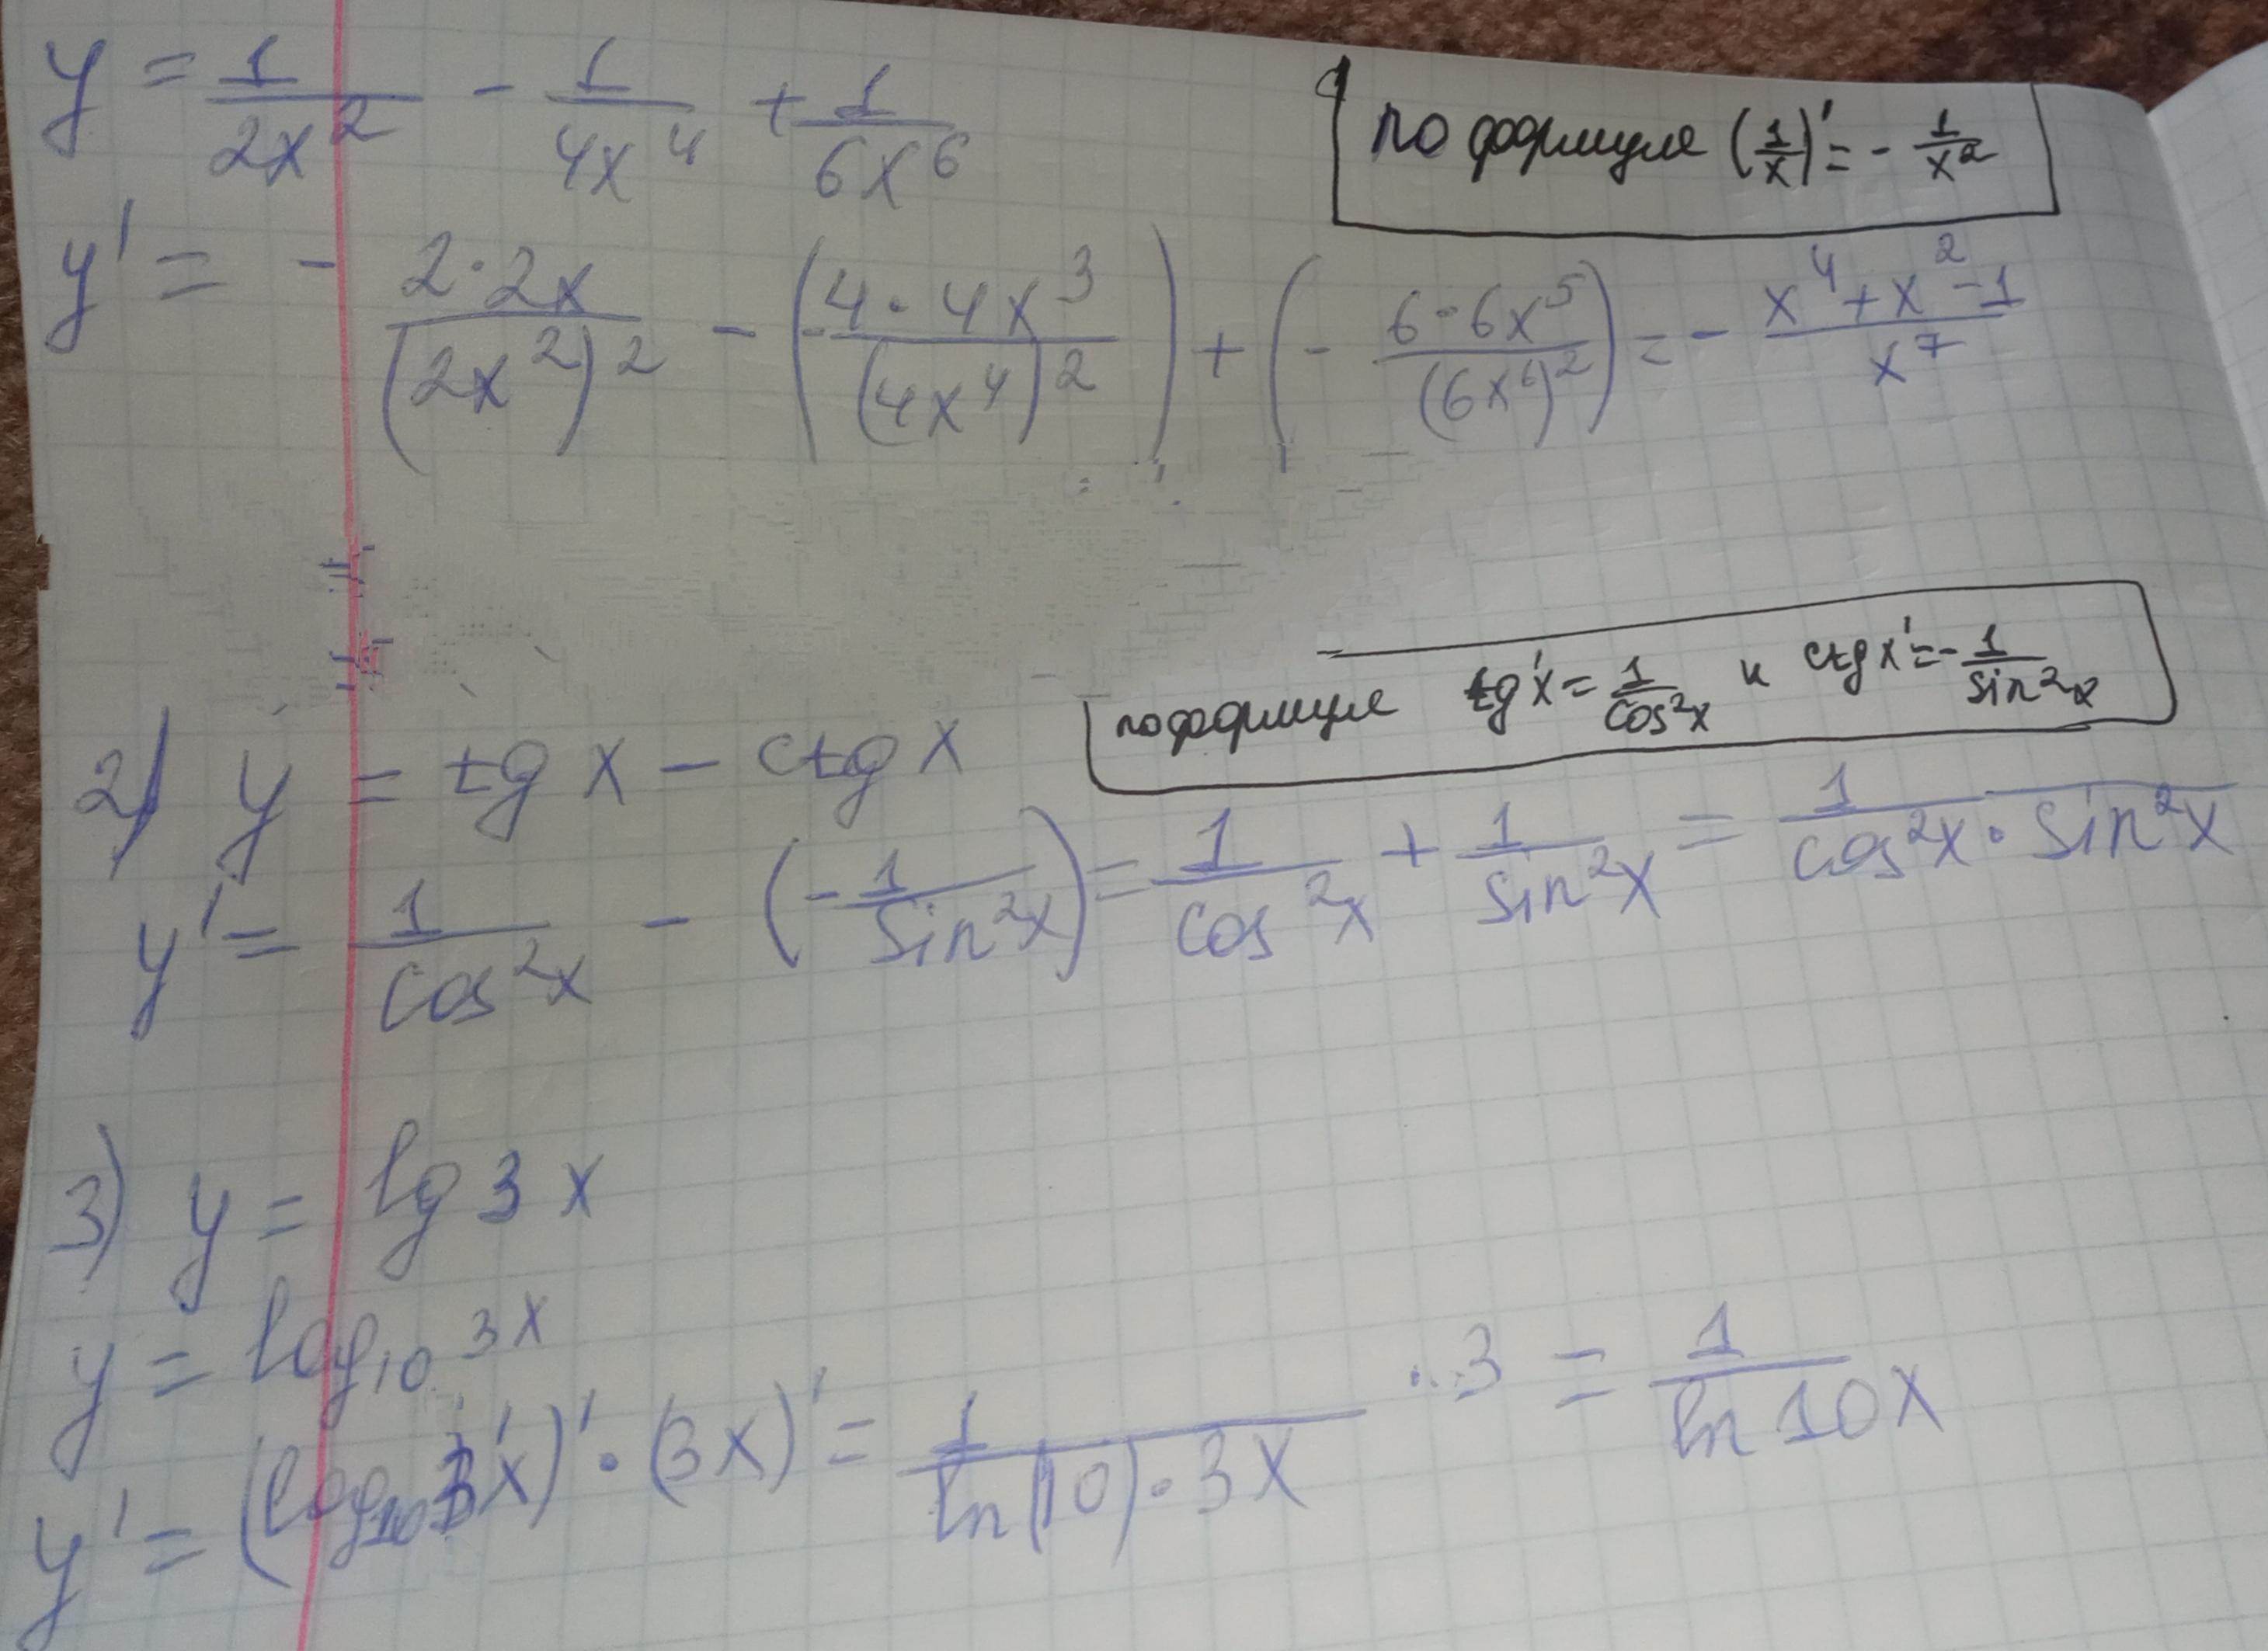 y = 1/(2x²) - 1/(4x⁴) + 1/(6x⁶)
по формуле (1/x)' = - 1/x²
y' = - (2·2x)/(2x²)² - (- (4·4x³)/(4x⁴)²) + (- (6·6x⁵)/(6x⁶)²) = - (x⁴+x²-1)/x⁷
по формуле tg'x = 1/cos²x и ctg x' = - 1/sin²x
2) y = tg x - ctg x
y' = 1/cos²x - (- 1/sin²x) = 1/cos²x + 1/sin²x = 1/(cos²x · sin²x)
3) y = lg 3x
y = log₁₀ 3x
y' = (log₁₀ 3x)' · (3x)' = 1/(ln(10)·3x) ·3 = 1/(ln 10x)